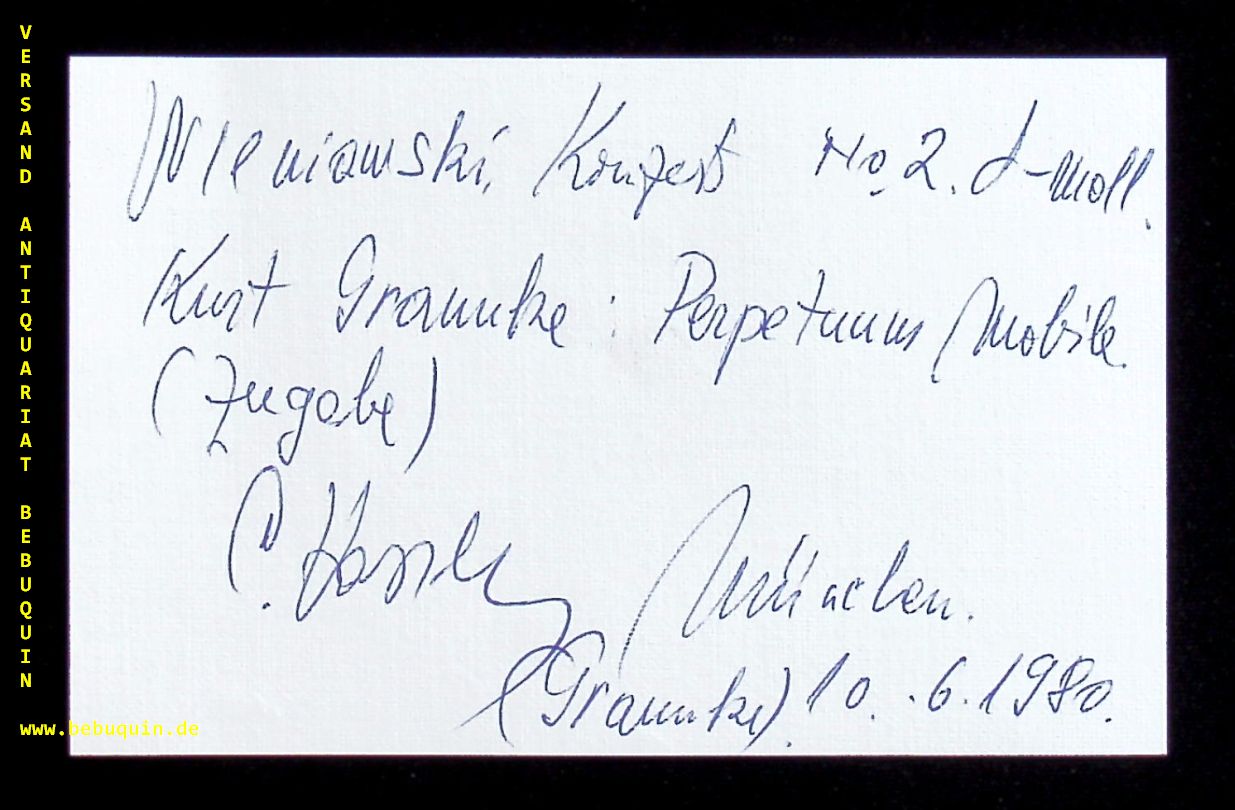 Wieniawski, Konzert No. 2. d-moll.
Kurt Graunke : Perpetuum Mobile.
(Zugabe)
München.
(Graunke) 10. .6.1980.
VERSAND ANTIQUARIAT BEBUQUIN
www.bebuquin.de